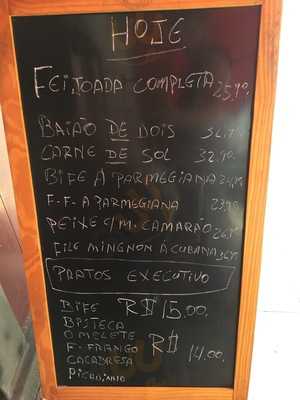 HOJE
FEIJOADA COMPLETA 25,90
BAIÃO DE DOIS
CARNE DE SOL 32,90
BIFE A PARMEGIANA
F-F-A PARMEGIANA 23,90
PEIXE C/M. CAMARÃO
FILE MINGNON À CUBANA
PRATOS EXECUTIVO
BIFE R$ 15,00.
BISTECA
OMELETE R$ 14,00.
F-FRANGO
CACADRESA
PICADINHO